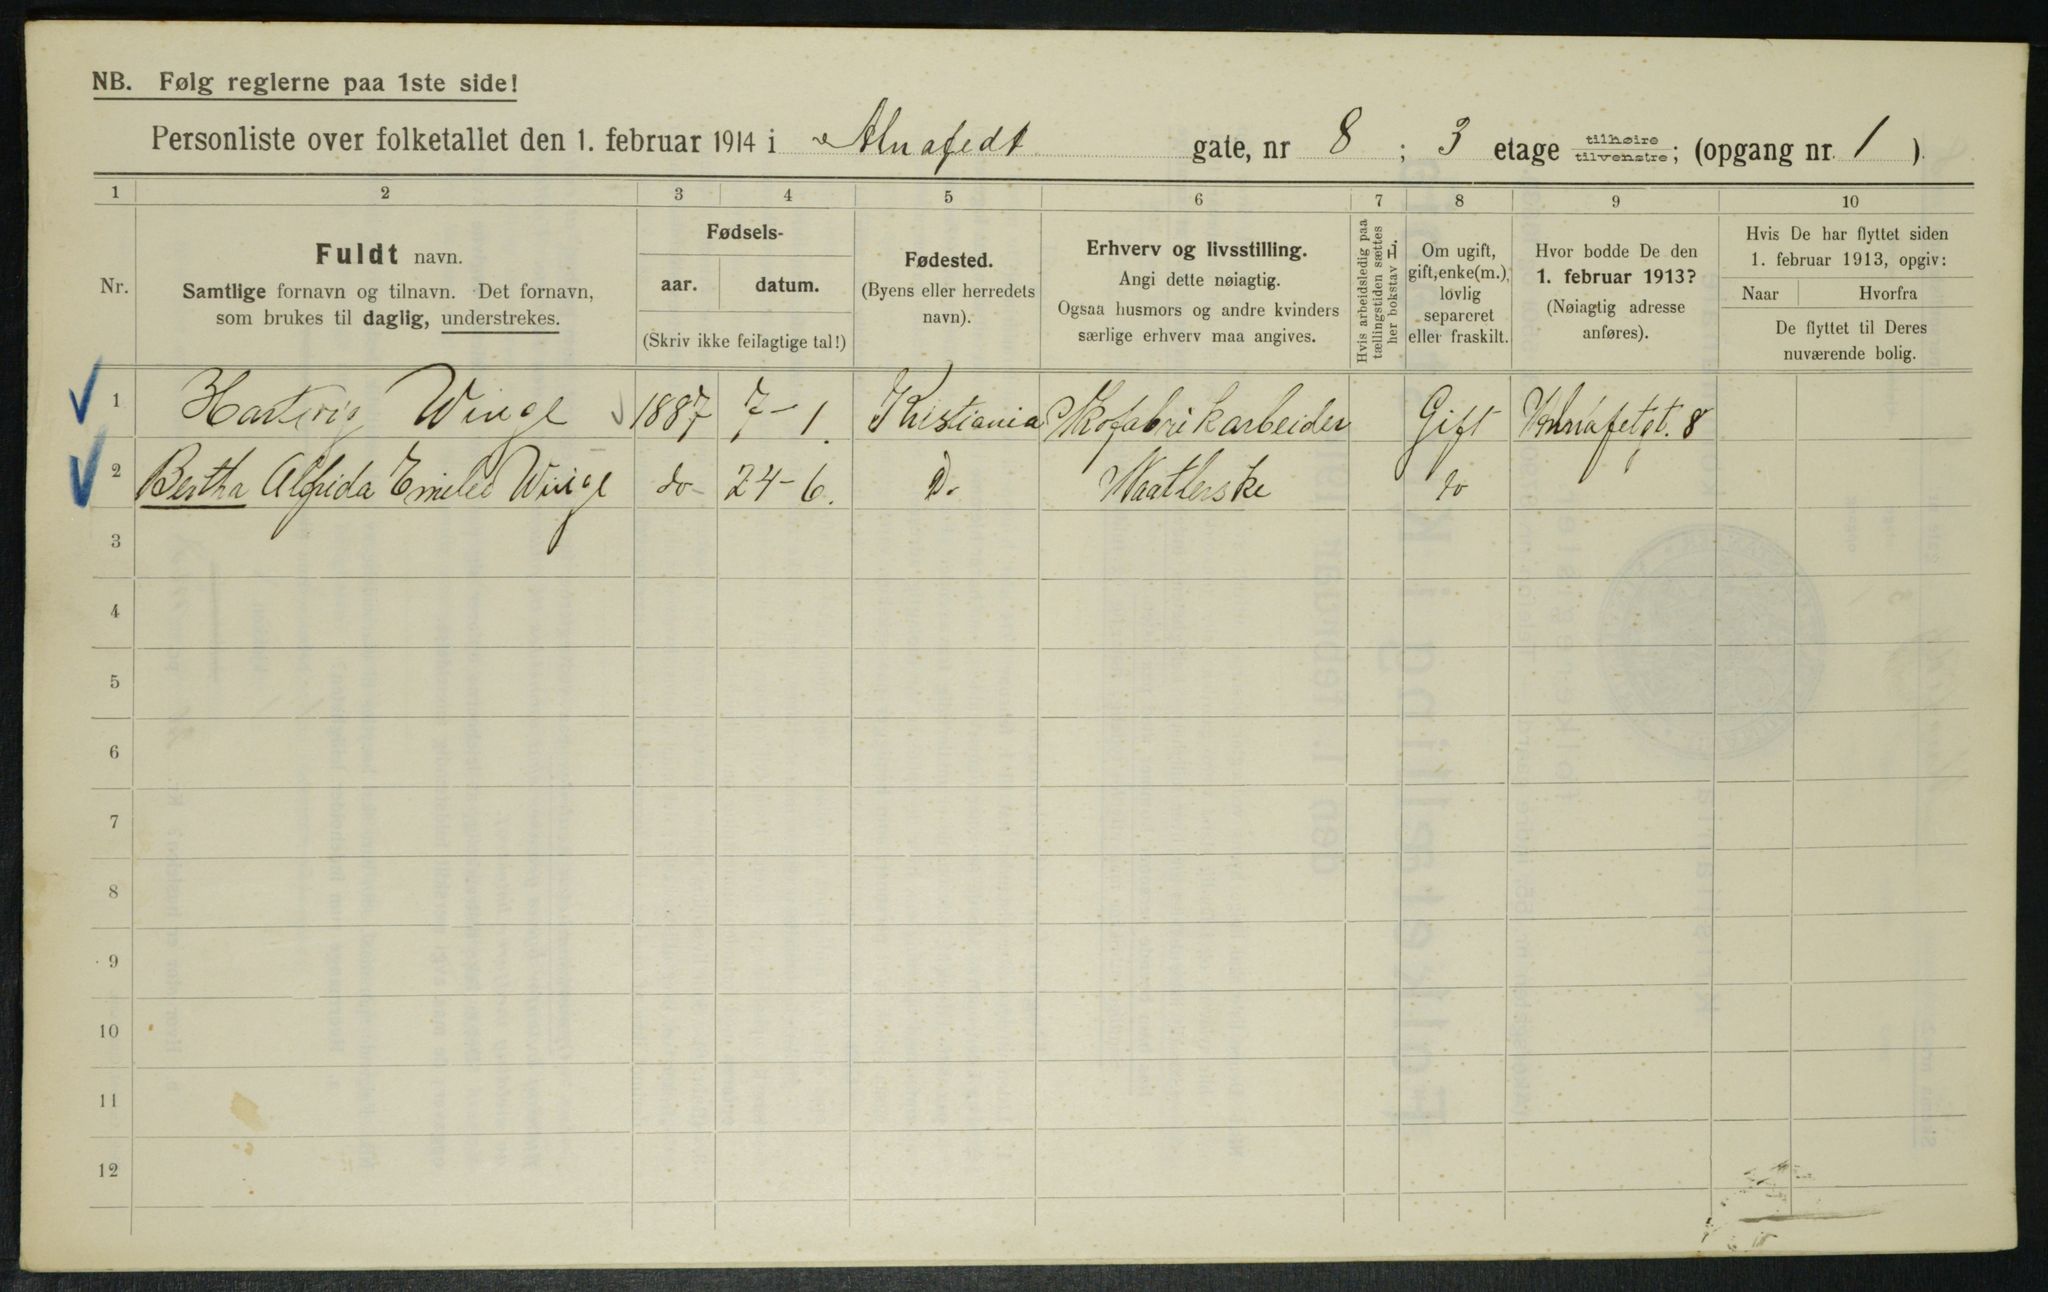 NB. Følg reglerne paa 1ste side!
Personliste over folketallet den 1. februar 1914 i Alnafedt gate, nr 8 ; 3 etage tilhøire tilvenstre; (opgang nr. 1 ).
1 2 3 4 5 6 7 8 9 10
Nr.
Fuldt navn.
Samtlige fornavn og tilnavn. Det fornavn,
som brukes til daglig, understrekes.
Fødsels-
aar. datum.
(Skriv ikke feilagtige tal!)
Fødested.
(Byens eller herredets
navn).
Erhverv og livsstilling.
Angi dette nøiagtig.
Ogsaa husmors og andre kvinders
særlige erhverv maa angives.
Hvis arbeidsledig paa
tællingstiden sættes
her bokstav H.
Om ugift,
gift, enke(m.),
lovlig
separeret
eller fraskilt.
Hvor bodde De den
1. februar 1913?
(Nøiagtig adresse
anføres).
Hvis De har flyttet siden
1. februar 1913, opgiv:
Naar Hvorfra
De flyttet til Deres
nuværende bolig.
1 Hartvig Winge 1887 7-1. Kristiania Skofabrikarbeider Gift 8
2 Bertha Alfrida Emilie Winge do- 24-6. Do. Naatlerske do
3
4
5
6
7
8
9
10
11
12